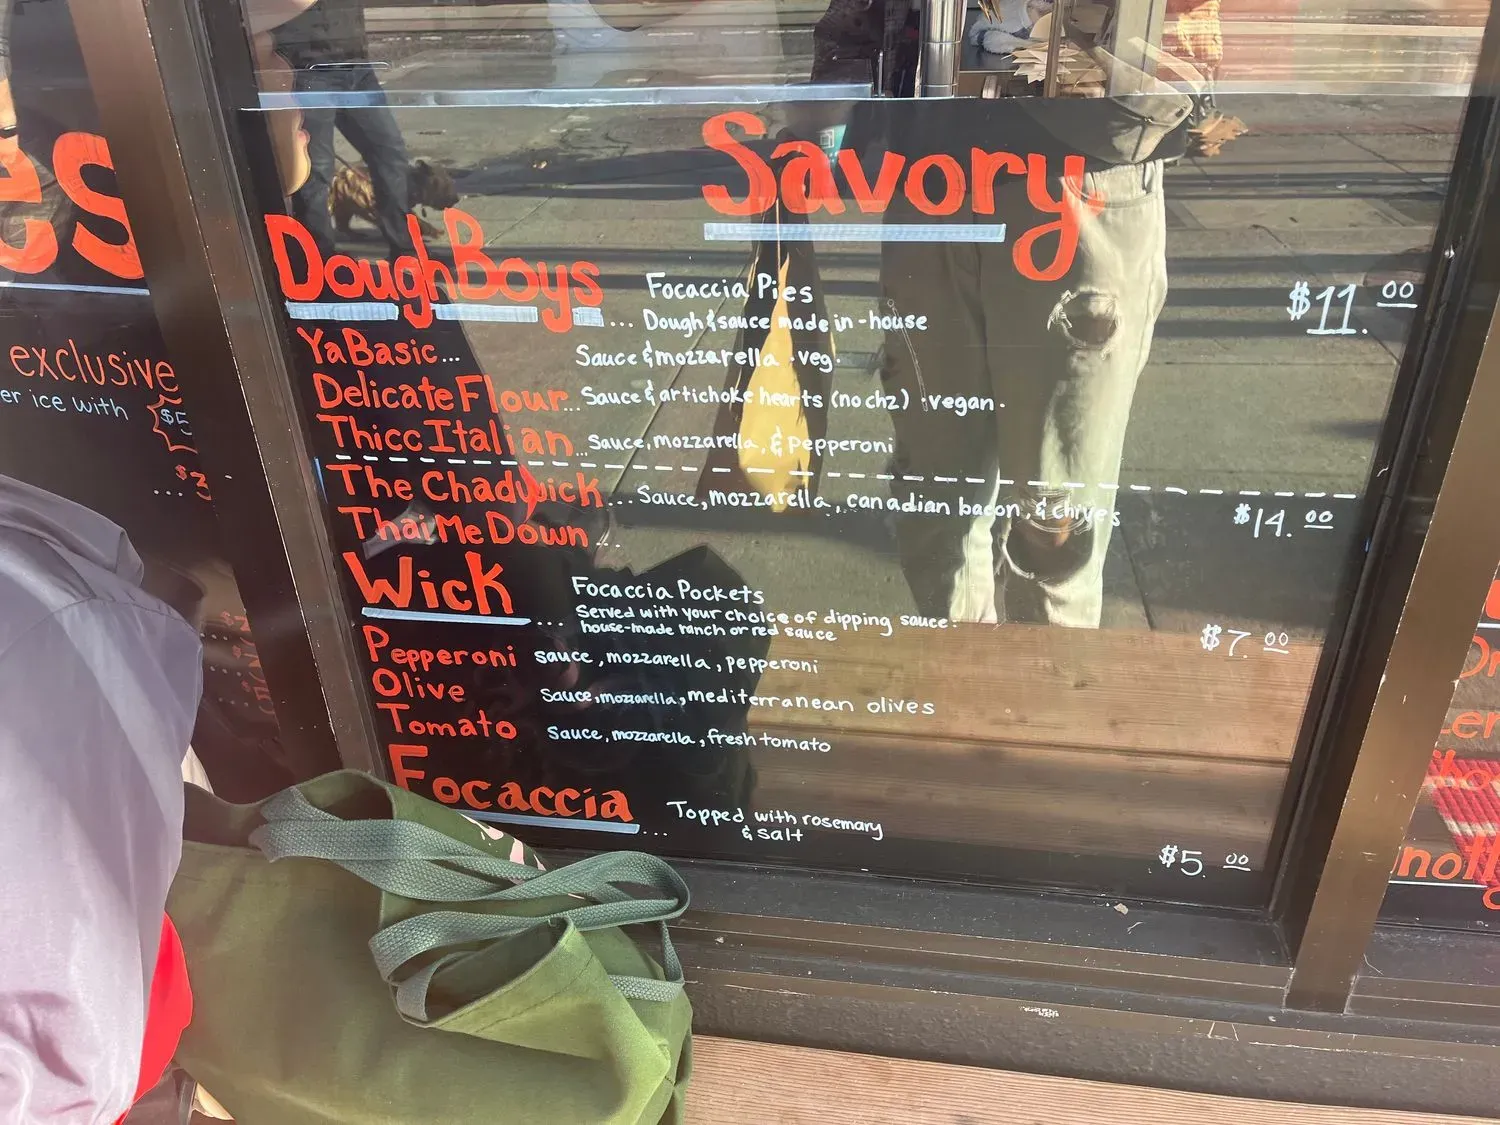 es
exclusive
er ice with $5
Savory
DoughBoys... Focaccia Pies $11.00
Dough & sauce made in-house
Ya Basic... Sauce & mozzarella ·veg·
Delicate Flour... Sauce & artichoke hearts (no chz) ·vegan·
Thicc Italian... Sauce, mozzarella, & pepperoni
The Chadwick... Sauce, mozzarella, canadian bacon, & chives $14.00
Thai Me Down...
Wick... Focaccia Pockets $7.00
Served with your choice of dipping sauce:
house-made ranch or red sauce
Pepperoni sauce, mozzarella, pepperoni
Olive Sauce, mozzarella, mediterranean olives
Tomato Sauce, mozzarella, fresh tomato
Focaccia... Topped with rosemary $5.00
& salt